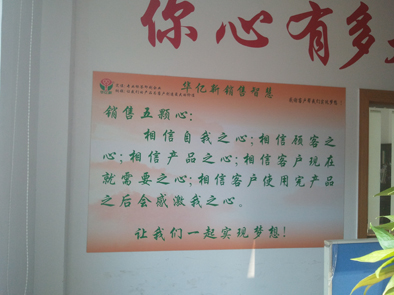 你心有多
华亿新销售智慧
销售五颗心:
相信自我之心;相信顾客之
心;相信产品之心;相信客户现在
就需要之心;相信客户使用完产品
之后会感激我之心。
让我们一起实现梦想!